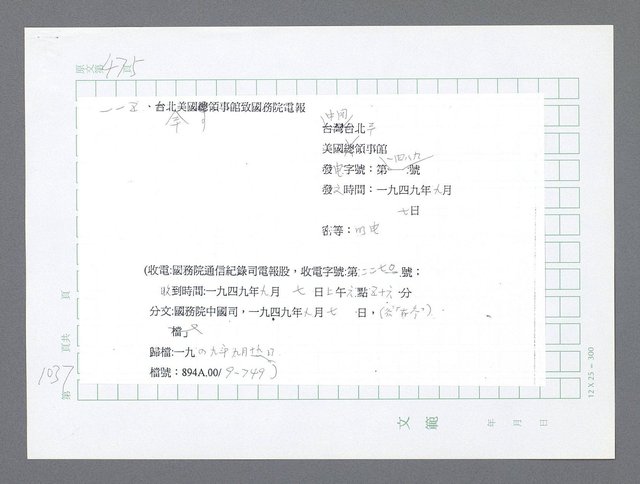 原文第475頁
一一五、台北美國總領事館致國務院電報
台灣台北
美國總領事館
發電字號：第一四八九號
發文時間：一九四九年九月
七日
密等：
(收電:國務院通信紀錄司電報股，收電字號:第二二七〇號；
收到時間:一九四九年九月 七 日上午六點五十六分
分文:國務院中國司，一九四九年九月七 日，
檔
歸檔:一九四九年九月十六日
檔號：894A.00/9-749)
第1037頁共 頁
12 X 25 = 300
文範
年 月 日